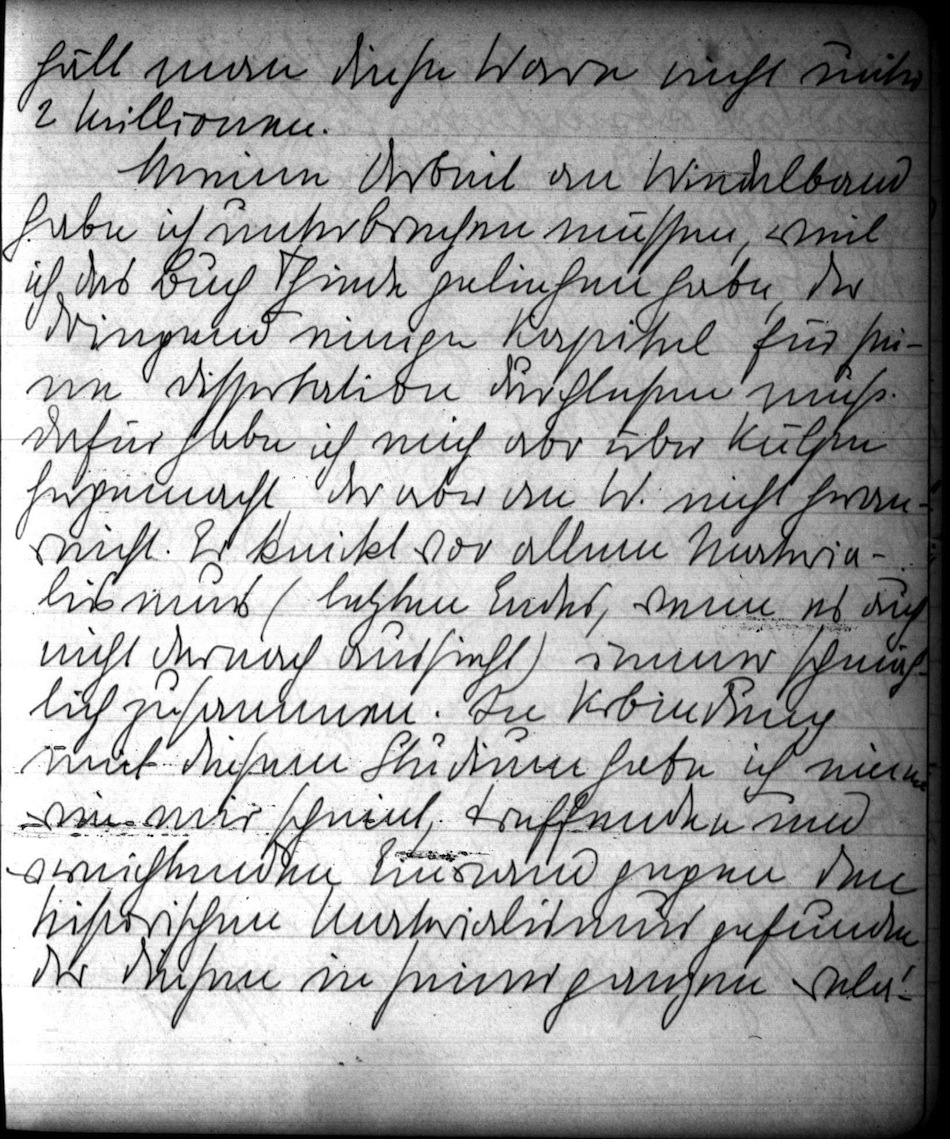 hält man diese Ware nicht unter
2 Millionen.
Meine Arbeit an Windelband
habe ich unterbrechen müssen, weil
ich das Buch Thiede geliehen habe, der
dringend einige Kapitel für sei-
ne Dissertation durchlesen muß.
Dafür habe ich mich aber über Külpe
hergemacht, der aber an W. nicht heran-
reicht. Er knickt vor allem Materia-
lismus (letzten Endes, wenn es auch
nicht darnach aussieht) immer schmäh-
lich zusammen. In Verbindung
mit diesem Studium habe ich einen
wie mir scheint, treffenden und
vernichtenden Einwand gegen den
historischen Materialismus gefunden
der diesen in seiner ganzen rela-